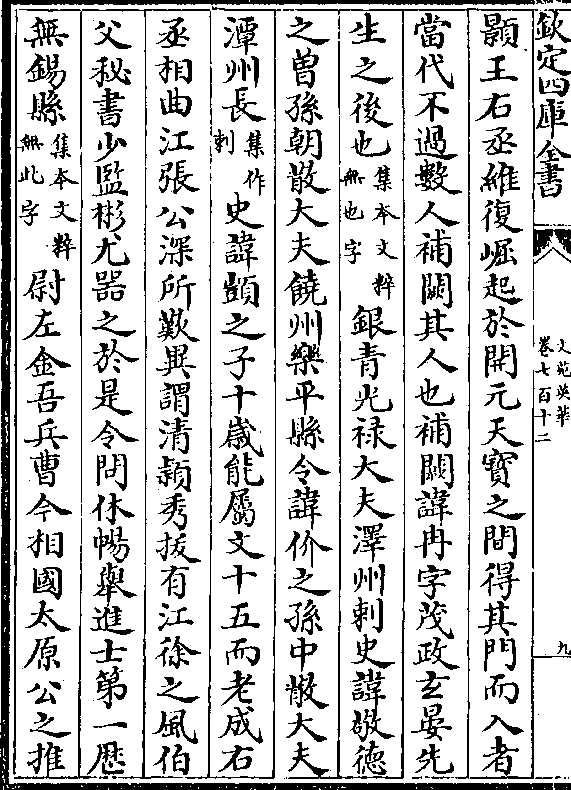 欽定四庫全書
文苑英華
卷七百十二
九
顥王右丞維復崛起於開元天寶之間得其門而入者
當代不過數人補闕其人也補闕諱冉字茂政玄晏先
生之後也集本文粹無也字銀青光禄大夫澤州刺史諱敬德
之曽孫朝散大夫饒州樂平縣令諱价之孫中散大夫
潭州長集作刺史諱顗之子十歲能屬文十五而老成右
丞相曲江張公深所歎異謂清潁秀拔有江徐之風伯
父秘書少監彬尤器之於是令問休暢舉進士第一歴
無錫縣集本文粹無此字尉左金吾兵曹今相國太原公之推